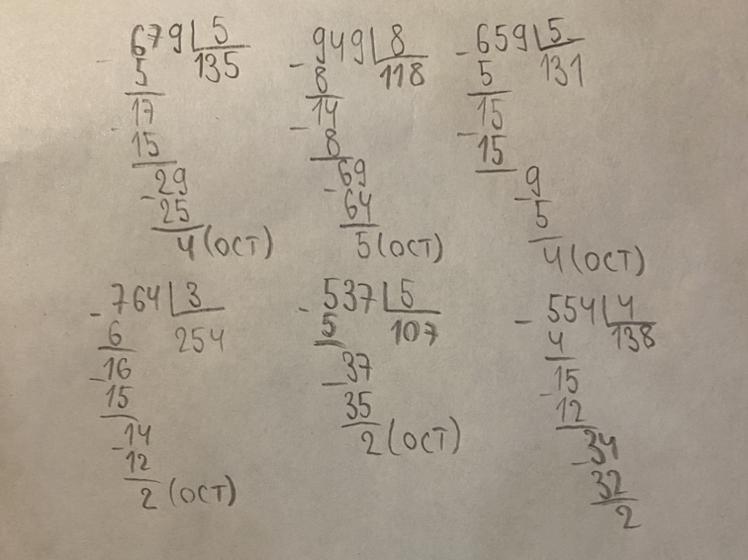 679 5
- 5 135
17
- 15
29
- 25
4 (ОСТ)
- 949 8
8 118
14
- 8
69
- 64
5 (ОСТ)
- 659 5
5 131
15
- 15
9
- 5
4 (ОСТ)
- 764 3
6 254
16
- 15
14
- 12
2 (ОСТ)
- 537 5
5 107
37
- 35
2 (ОСТ)
- 554 4
4 138
15
- 12
34
- 32
2